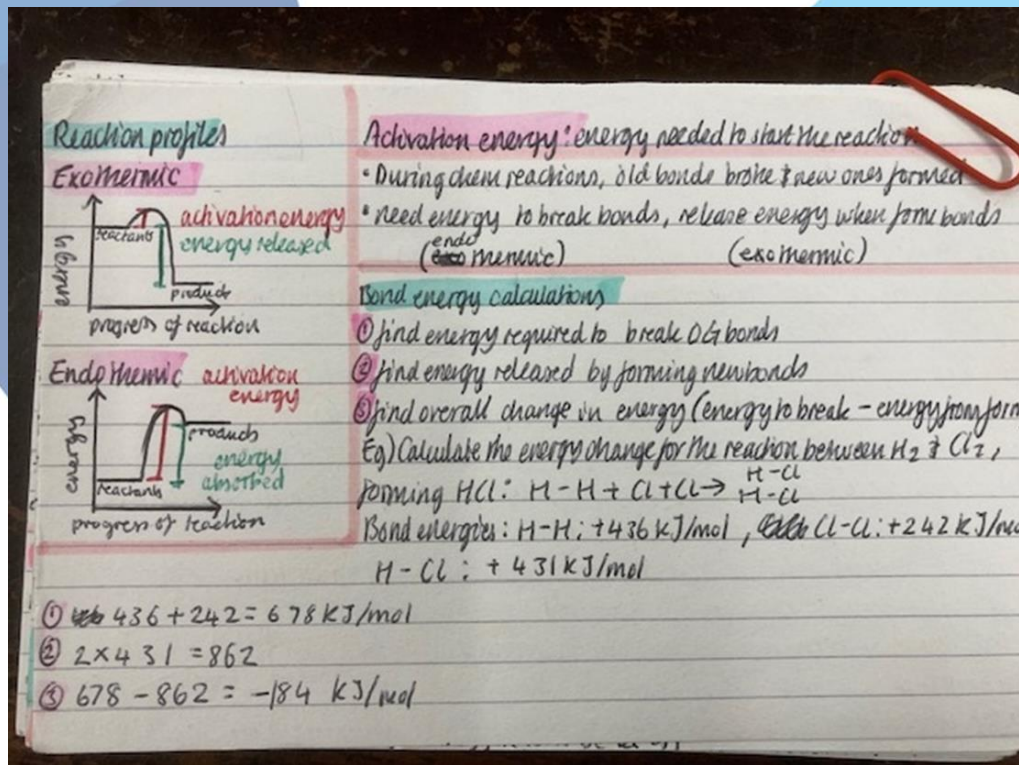 Reaction profiles
Exothermic
energy
reactants
activation energy
energy released
products
progress of reaction
Endothermic activation
energy
energy
reactants
products
energy
absorbed
progress of reaction
Activation energy: energy needed to start the reaction
• During chem reactions, old bonds broke & new ones formed
• need energy to break bonds, release energy when form bonds
(endothermic) (exothermic)
Bond energy calculations
① find energy required to break OG bonds
② find energy released by forming new bonds
③ find overall change in energy (energy to break - energy from form
Eg) Calculate the energy change for the reaction between H₂ & Cl₂,
H-Cl
forming HCl: H-H + Cl+Cl → H-Cl
Bond energies: H-H: +436 kJ/mol, Cl-Cl: +242 kJ/mol
H-Cl: +431 kJ/mol
① 436 + 242 = 678 KJ/mol
② 2×431 = 862
③ 678 - 862 = -184 KJ/mol